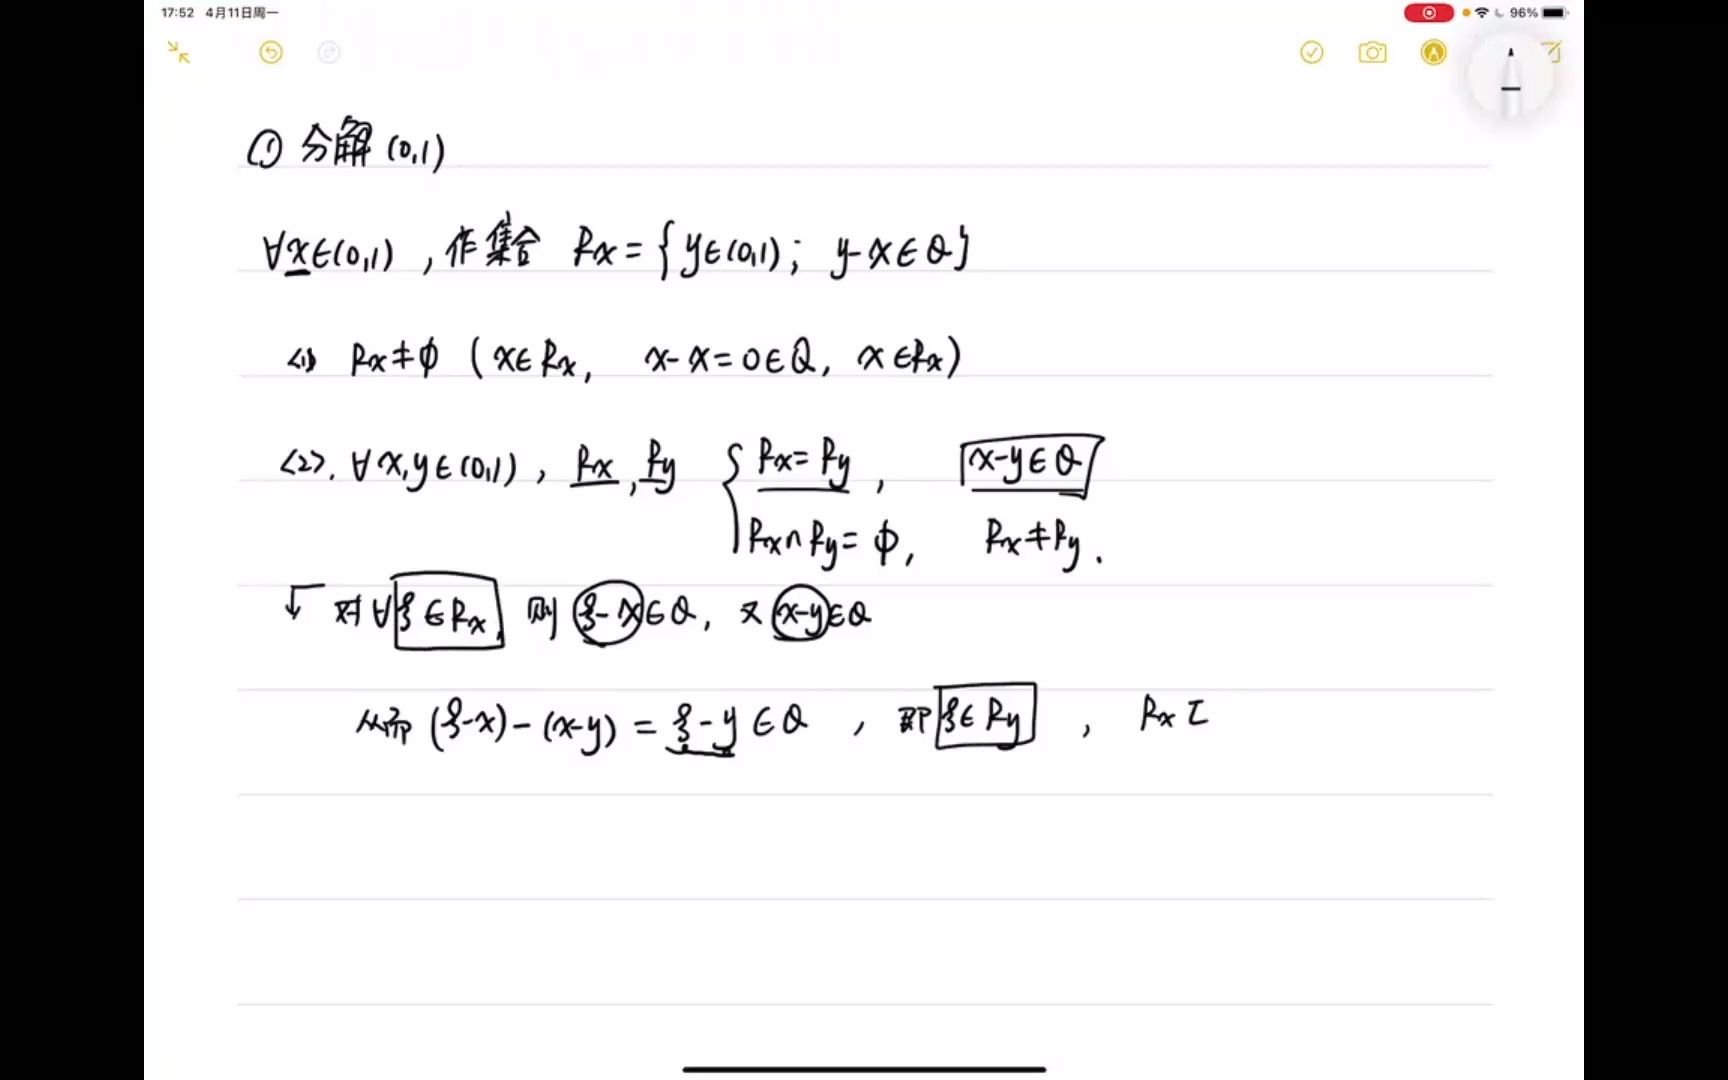 17:52 4月11日周一
96%
① 分解 (0,1)
∀x∈(0,1) , 作集合 Rx = {y∈(0,1); y-x∈Q}
<1> Rx≠∅ (x∈Rx, x-x=0∈Q, x∈Rx)
<2>. ∀x,y∈(0,1), Rx, Ry { Rx=Ry , x-y∈Q
Rx∩Ry=∅, Rx≠Ry.
对∀ξ∈Rx, 则 ξ-x∈Q, 又 x-y∈Q
从而 (ξ-x)-(x-y) = ξ-y∈Q , 即 ξ∈Ry , Rx